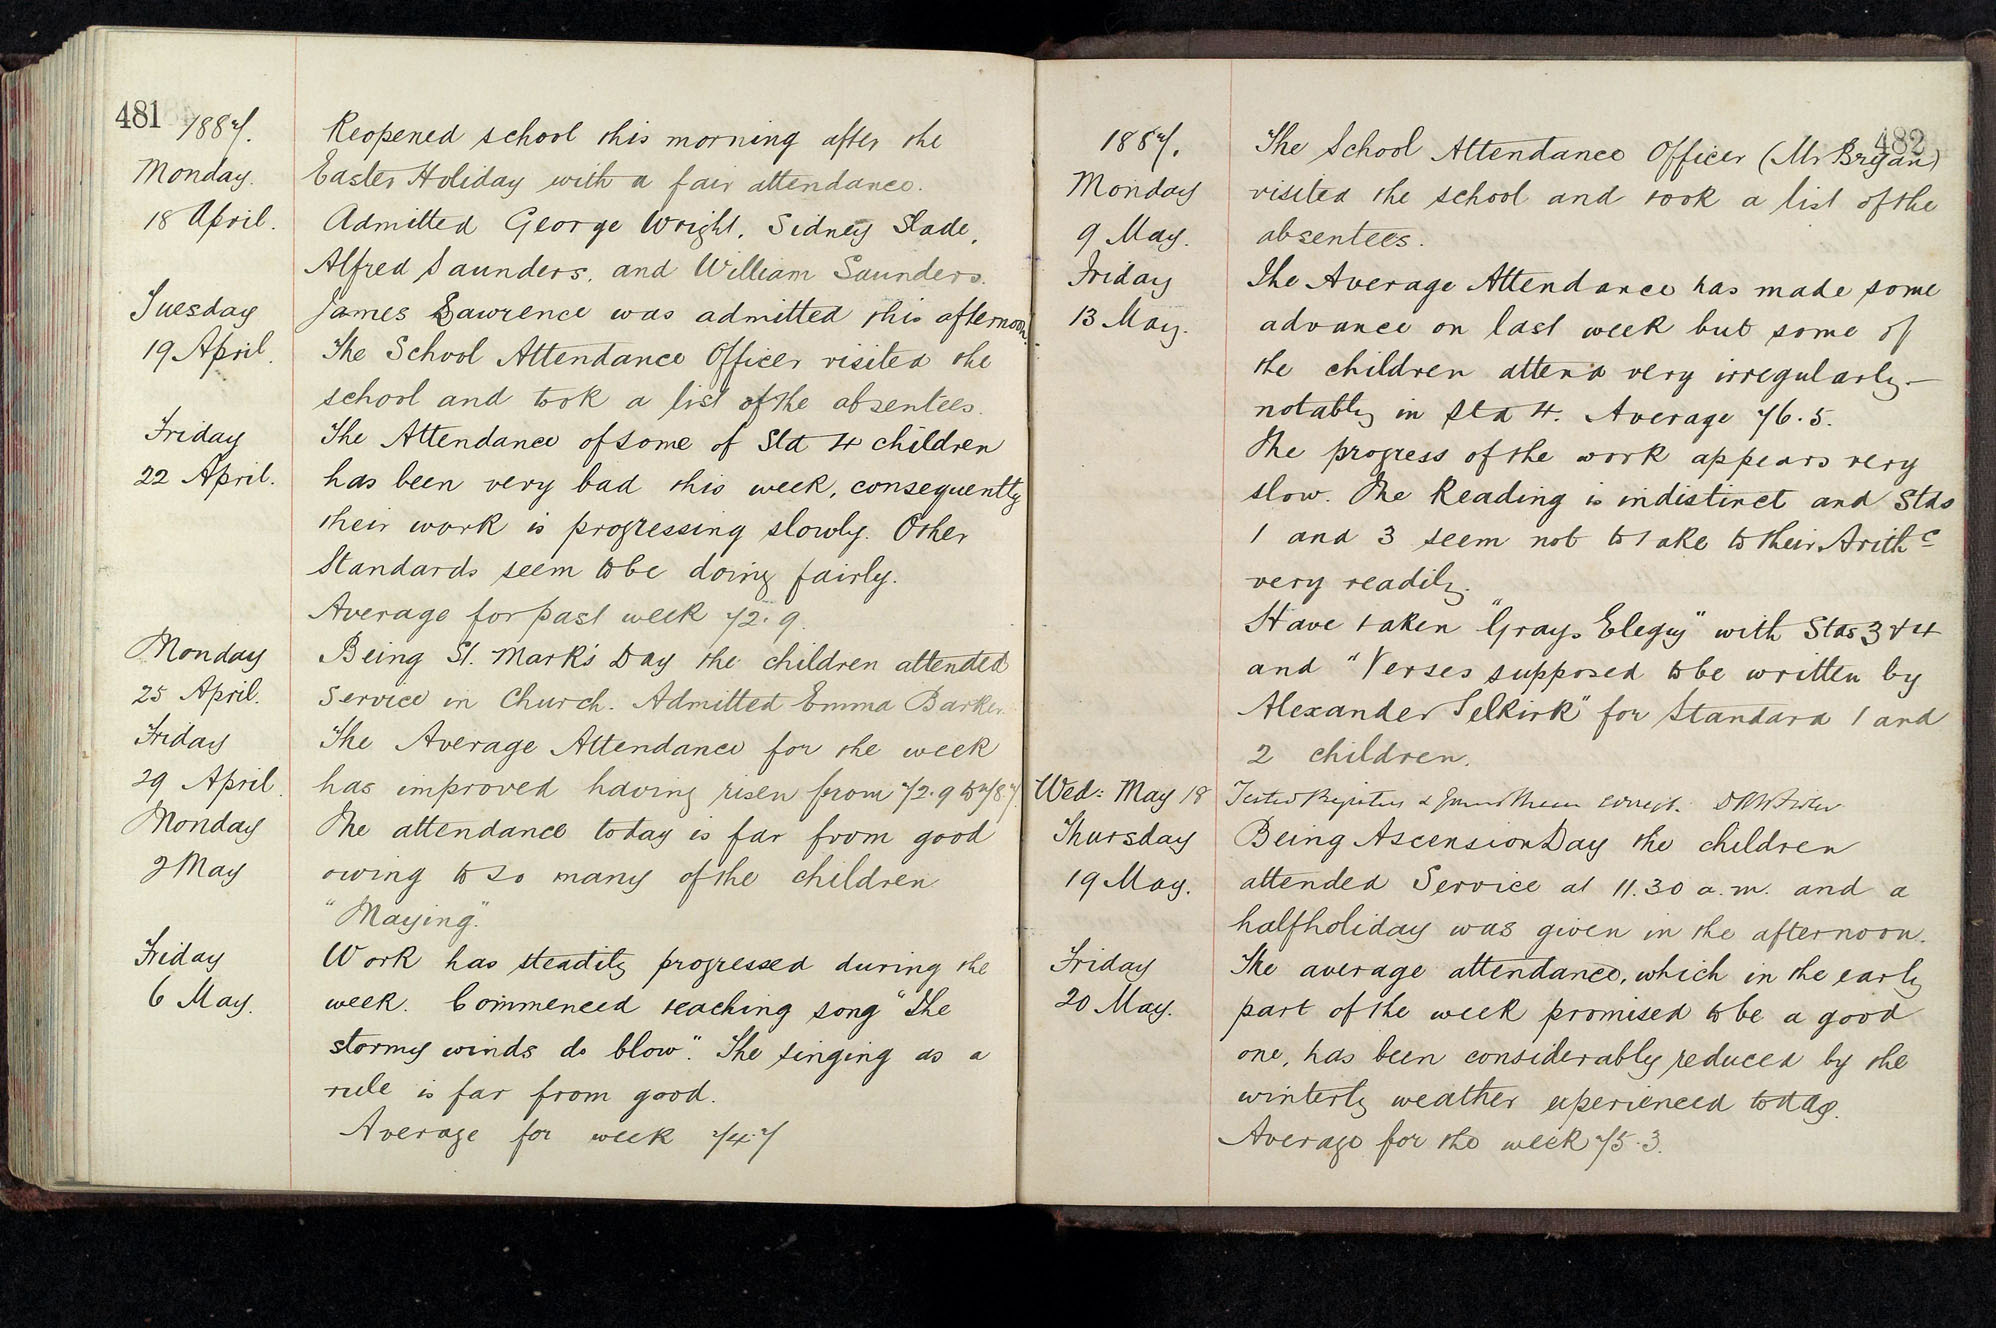 481
1887.
Monday.
18 April.
Reopened school this morning after the
Easter Holiday with a fair attendance.
Admitted George Wright, Sidney Slade,
Alfred Saunders, and William Saunders.
Tuesday
19 April.
James Lawrence was admitted this afternoon.
The School Attendance Officer visited the
school and took a list of the absentees.
Friday
22 April.
The Attendance of some of Std 4 children
has been very bad this week, consequently
their work is progressing slowly. Other
Standards seem to be doing fairly.
Average for past week 72.9.
Monday
25 April.
Being St. Mark's Day the children attended
Service in Church. Admitted Emma Barker.
Friday
29 April.
The Average Attendance for the week
has improved having risen from 72.9 to 78.7.
Monday
2 May
The attendance today is far from good
owing to so many of the children
"Maying".
Friday
6 May.
Work has steadily progressed during the
week. Commenced teaching song "The
stormy winds do blow". The singing as a
rule is far from good.
Average for week 74.7
482
1887.
Monday
9 May.
The School Attendance Officer (Mr Bryan)
visited the school and took a list of the
absentees.
Friday
13 May.
The Average Attendance has made some
advance on last week but some of
the children attend very irregularly —
notably in Std 4. Average 76.5.
The progress of the work appears very
slow. The Reading is indistinct and Stds
1 and 3 seem not to take to their Arithc
very readily.
Have taken "Grays Elegy" with Stds 3 & 4
and "Verses supposed to be written by
Alexander Selkirk" for Standard 1 and
2 children.
Wed: May 18
Tested Registers & found them correct.
Thursday
19 May.
Being Ascension Day the children
attended Service at 11.30 a.m. and a
halfholiday was given in the afternoon.
Friday
20 May.
The average attendance, which in the early
part of the week promised to be a good
one, has been considerably reduced by the
winterly weather experienced today.
Average for the week 75.3.